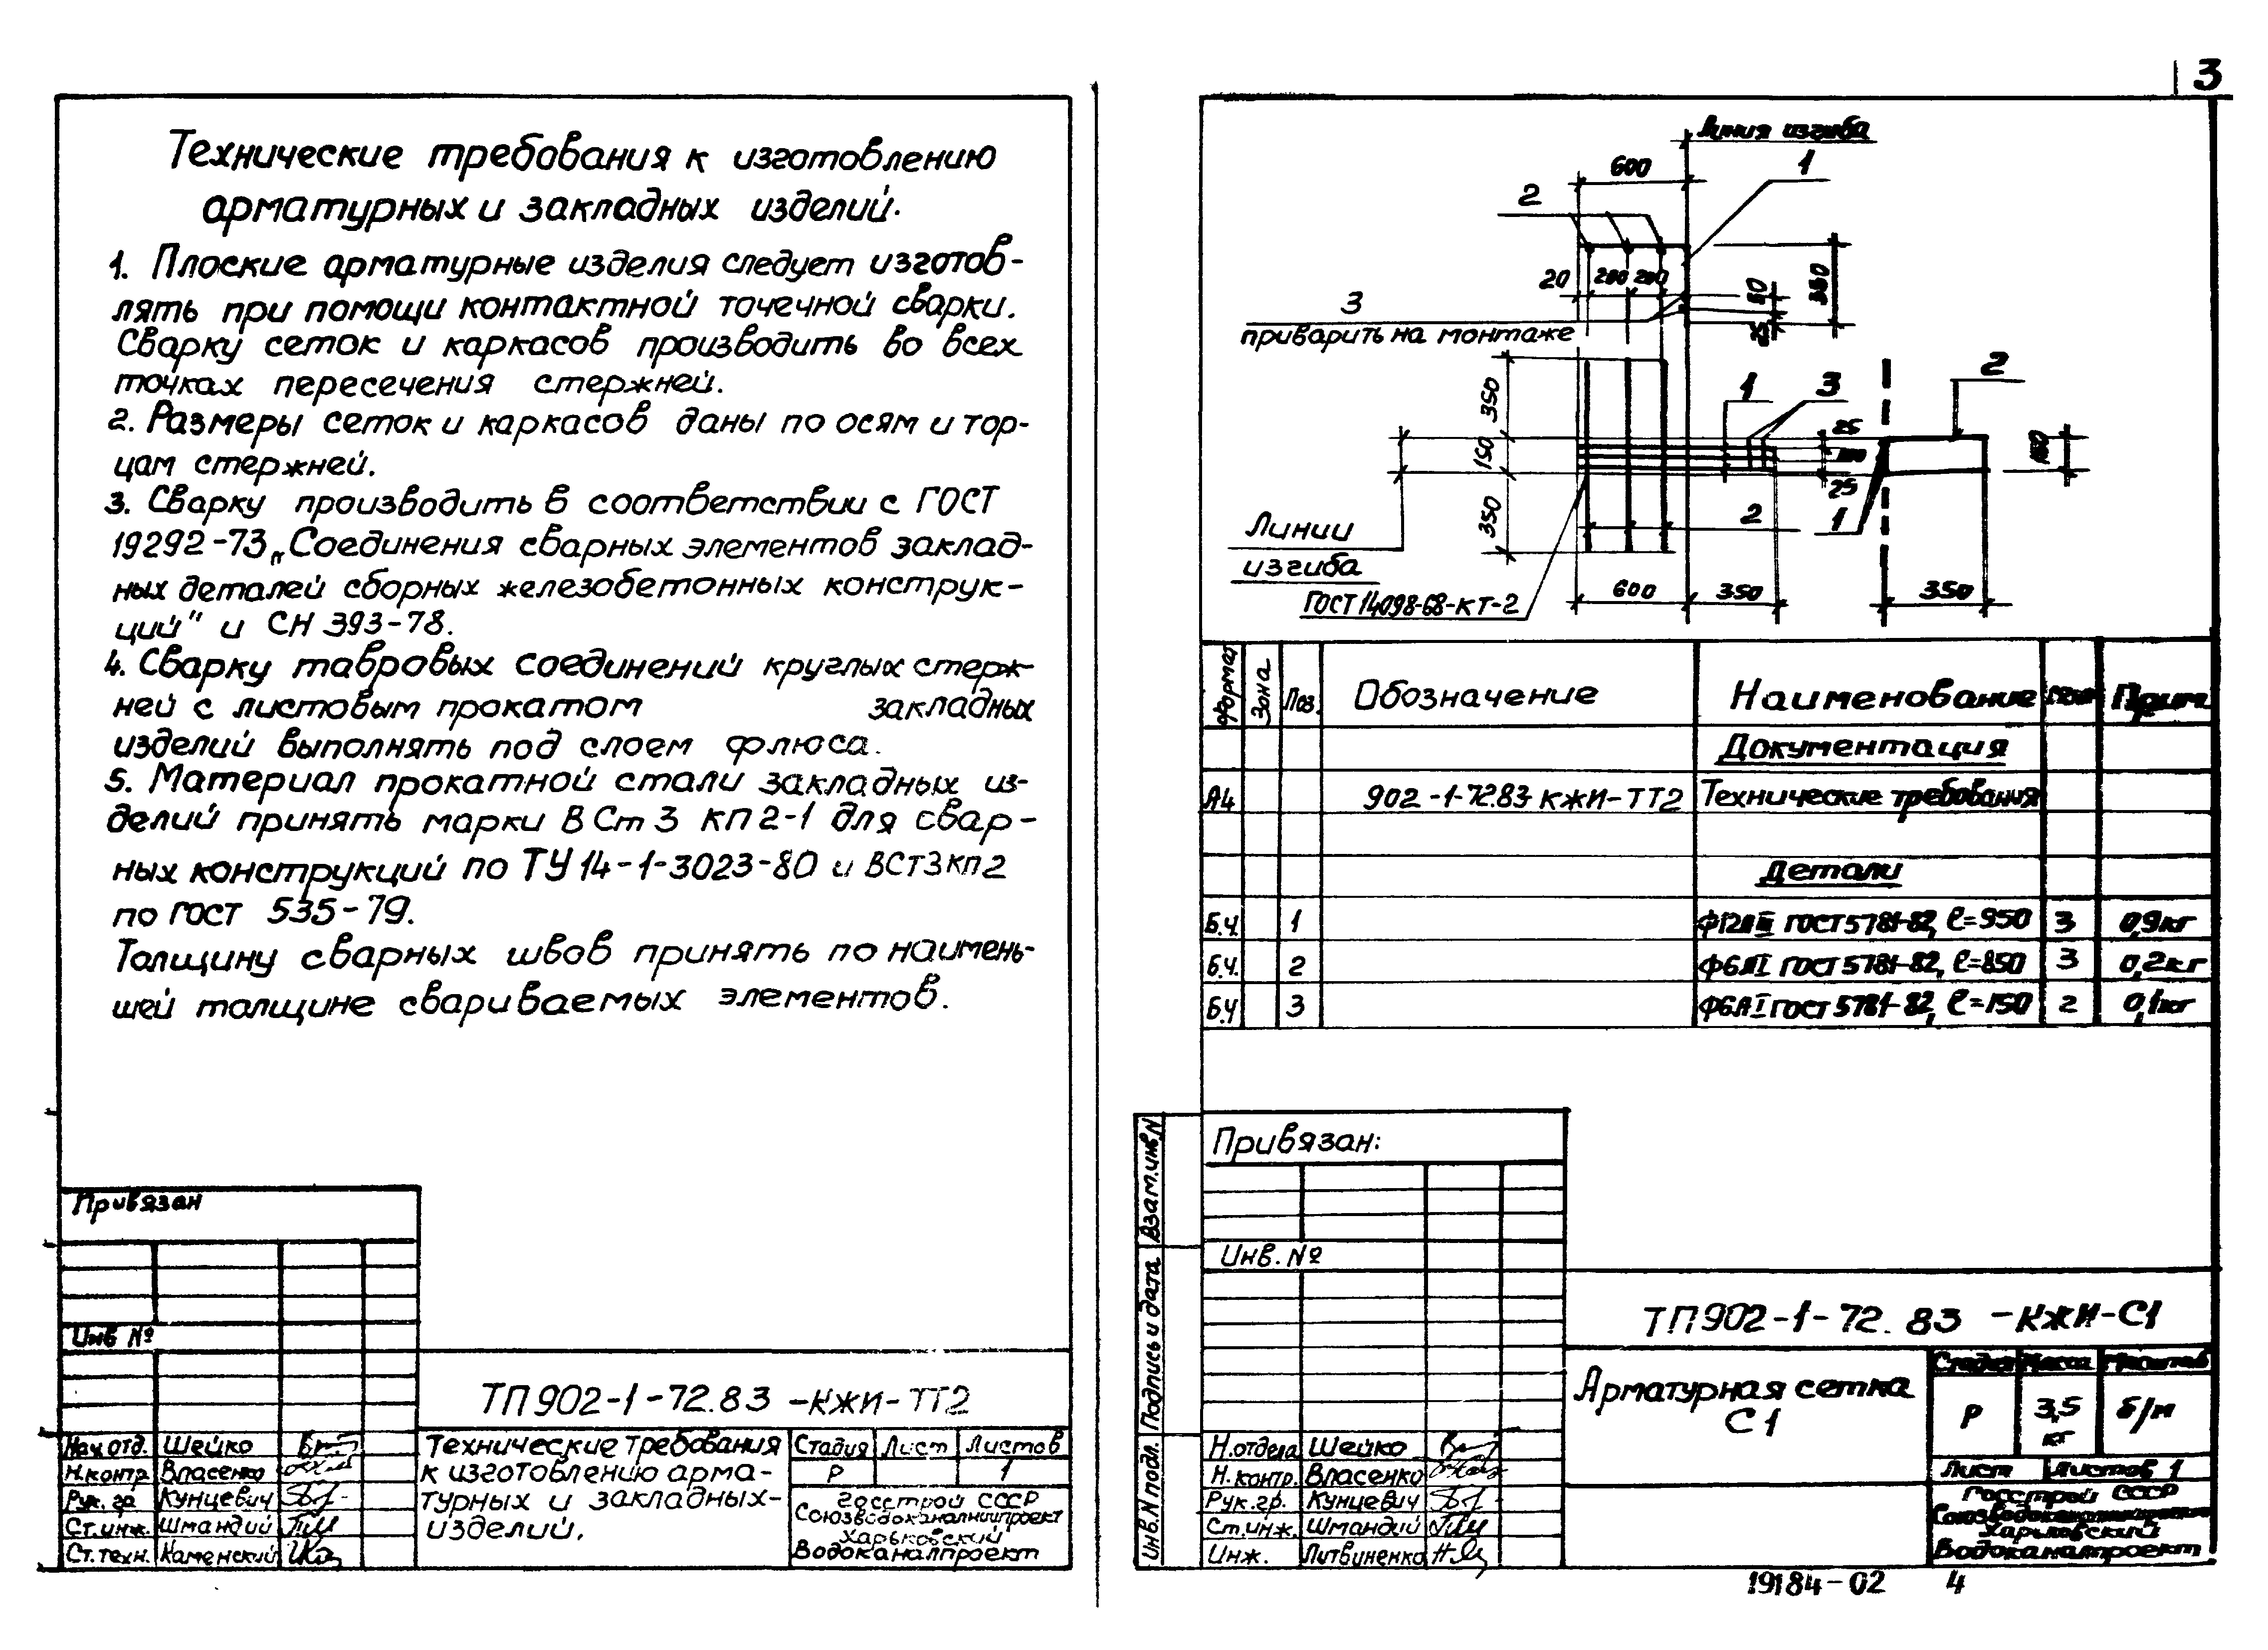 3
Технические требования к изготовлению
арматурных и закладных изделий.
1. Плоские арматурные изделия следует изготов-
лять при помощи контактной точечной сварки.
Сварку сеток и каркасов производить во всех
точках пересечения стержней.
2. Размеры сеток и каркасов даны по осям и тор-
цам стержней.
3. Сварку производить в соответствии с ГОСТ
19292-73 „Соединения сварных элементов заклад-
ных деталей сборных железобетонных конструк-
ций" и СН 393-78.
4. Сварку тавровых соединений круглых стерж-
ней с листовым прокатом закладных
изделий выполнять под слоем флюса.
5. Материал прокатной стали закладных из-
делий принять марки В Ст 3 кп 2-1 для свар-
ных конструкций по ТУ 14-1-3023-80 и ВСт3кп2
по ГОСТ 535-79.
Толщину сварных швов принять по наимень-
шей толщине свариваемых элементов.
Привязан
Инв №
ТП 902-1-72.83 -КЖИ-ТТ2
Нач.отд. Шейко
Н.контр Власенко
Рук. гр. Кунцевич
Ст.инж. Шмандий
Ст.техн. Каменский
Технические требования
к изготовлению арма-
турных и закладных-
изделий.
Стадия Лист Листов
Р 1
Госстрой СССР
Союзводоканалниипроект
Харьковский
Водоканалпроект
Линия изгиба
600
1
2
20 200 200
50
350
25
3
приварить на монтаже
350
150
350
1 3
2
25
100
25
150
2
1
Линии
изгиба
ГОСТ 14098-68-КТ-2
600 350 350
Формат Зона Поз. Обозначение Наименование Прим.
Документация
А4 902-1-72.83-КЖИ-ТТ2 Технические требования
Детали
Б.Ч. 1 Ф12АIII ГОСТ 5781-82, ℓ=950 3 0,9кг
Б.Ч. 2 Ф6АI ГОСТ 5781-82, ℓ=850 3 0,2кг
Б.Ч 3 Ф6АI ГОСТ 5781-82, ℓ=150 2 0,1кг
Взам.инв.N
Подпись и дата
Инв.N подл.
Привязан:
Инв. №
ТП 902-1-72.83 -КЖИ-С1
Н.отдела Шейко
Н.контр. Власенко
Рук.гр. Кунцевич
Ст.инж. Шмандий
Инж. Литвиненко
Арматурная сетка
С1
Стадия Масса Масштаб
Р 3,5 кг б/м
Лист Листов 1
Госстрой СССР
Союзводоканалниипроект
Харьковский
Водоканалпроект
19184-02 4